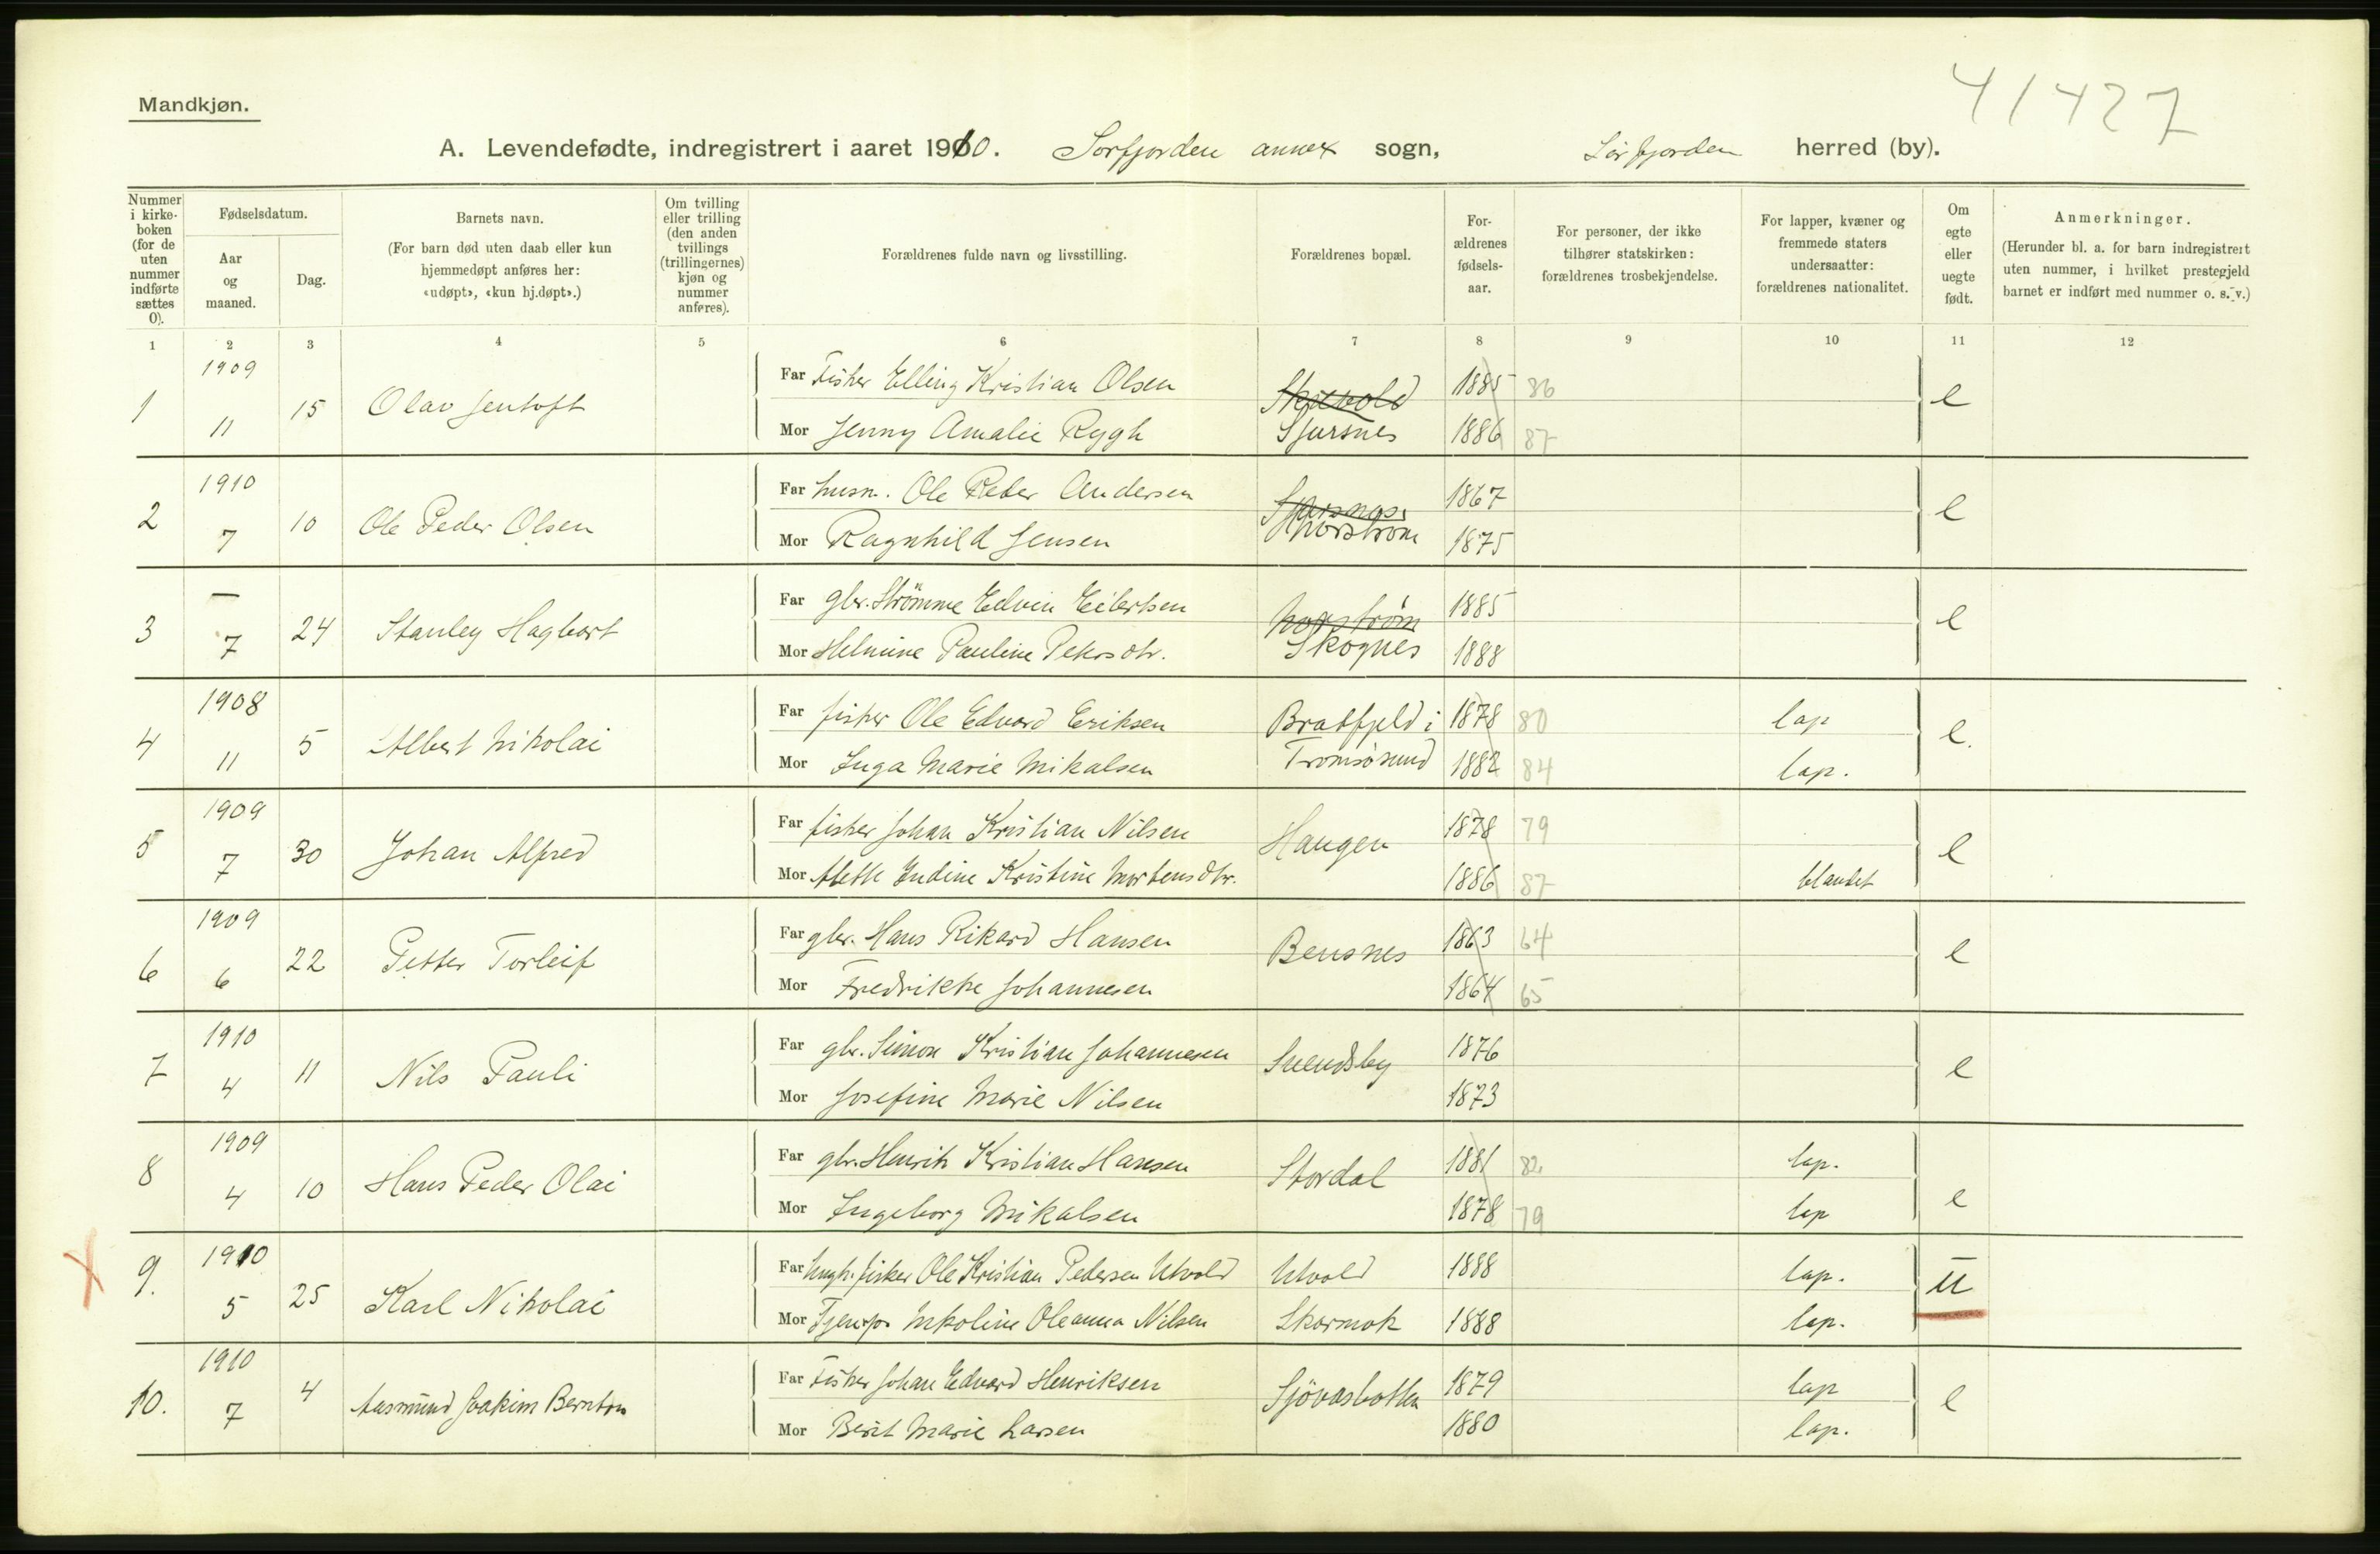 41427
Mandkjøn.
A. Levendefødte, indregistrert i aaret 1910. Sorfjorden annex sogn, Sørfjorden herred (by).
Nummer i kirke-boken (for de uten nummer indførte sættes 0).
Fødselsdatum.
Aar og maaned.
Dag.
Barnets navn.
(For barn død uten daab eller kun hjemmedøpt anføres her: «udøpt», «kun hj.døpt».)
Om tvilling eller trilling (den anden tvillings (trillingernes) kjøn og nummer anføres).
Forældrenes fulde navn og livsstilling.
Forældrenes bopæl.
For-ældrenes fødsels-aar.
For personer, der ikke tilhører statskirken: forældrenes trosbekjendelse.
For lapper, kvæner og fremmede staters undersaatter: forældrenes nationalitet.
Om egte eller uegte født.
Anmerkninger.
(Herunder bl. a. for barn indregistrert uten nummer, i hvilket prestegjeld barnet er indført med nummer o. s. v.)
1 2 3 4 5 6 7 8 9 10 11 12
1 1909 11 15 Olav Jentoft
Far Fisker Elling Kristian Olsen 1885 86 e
Mor Jenny Amalie Rygh Sjursnes 1886 87
2 1910 7 10 Ole Peder Olsen
Far husm. Ole Peder Andersen Sjursnes 1867 e
Mor Ragnhild Jensen 1875
3 — 7 24 Stanley Hagbart
Far gbr. Strömme Edvin Eilertsen 1885 e
Mor Helmine Pauline Pekrsdtr. Skognes 1888
4 1908 11 5 Albert Nikolai
Far fisker Ole Edvard Eriksen Bratfjeld i 1878 80 lap e.
Mor Inga Marie Mikalsen Tromsøsund 1882 84 lap.
5 1909 7 30 Johan Alfred
Far fisker Johan Kristian Nilsen Haugen 1878 79 e
Mor Alette Indine Kristine Mortensdtr. 1886 87 blandet
6 1909 6 22 Petter Torleif
Far gbr. Hans Rikard Hansen Bensnes 1863 64 e
Mor Fredrikke Johannesen 1864 65
7 1910 4 11 Nils Pauli
Far gbr. Simon Kristian Johannesen Svendsby 1876 e
Mor Josefine Marie Nilsen 1873
8 1909 4 10 Hans Peder Olai
Far gbr. Henrik Kristian Hansen Stordal 1881 82 lap. e
Mor Ingeborg Mikalsen 1878 79 lap
9. 1910 5 25 Karl Nikolai
Far Ungk. fisker Ole Kristian Pedersen Utvold Utvold 1888 lap. u
Mor Nikoline Oleanna Nilsen Skarmok 1888 lap.
10. 1910 7 4 Aasmund Joakim Bernton
Far Fisker Johan Edvard Henriksen Sjövasbotten 1879 lap e
Mor Berit Marie Larsen 1880 lap.